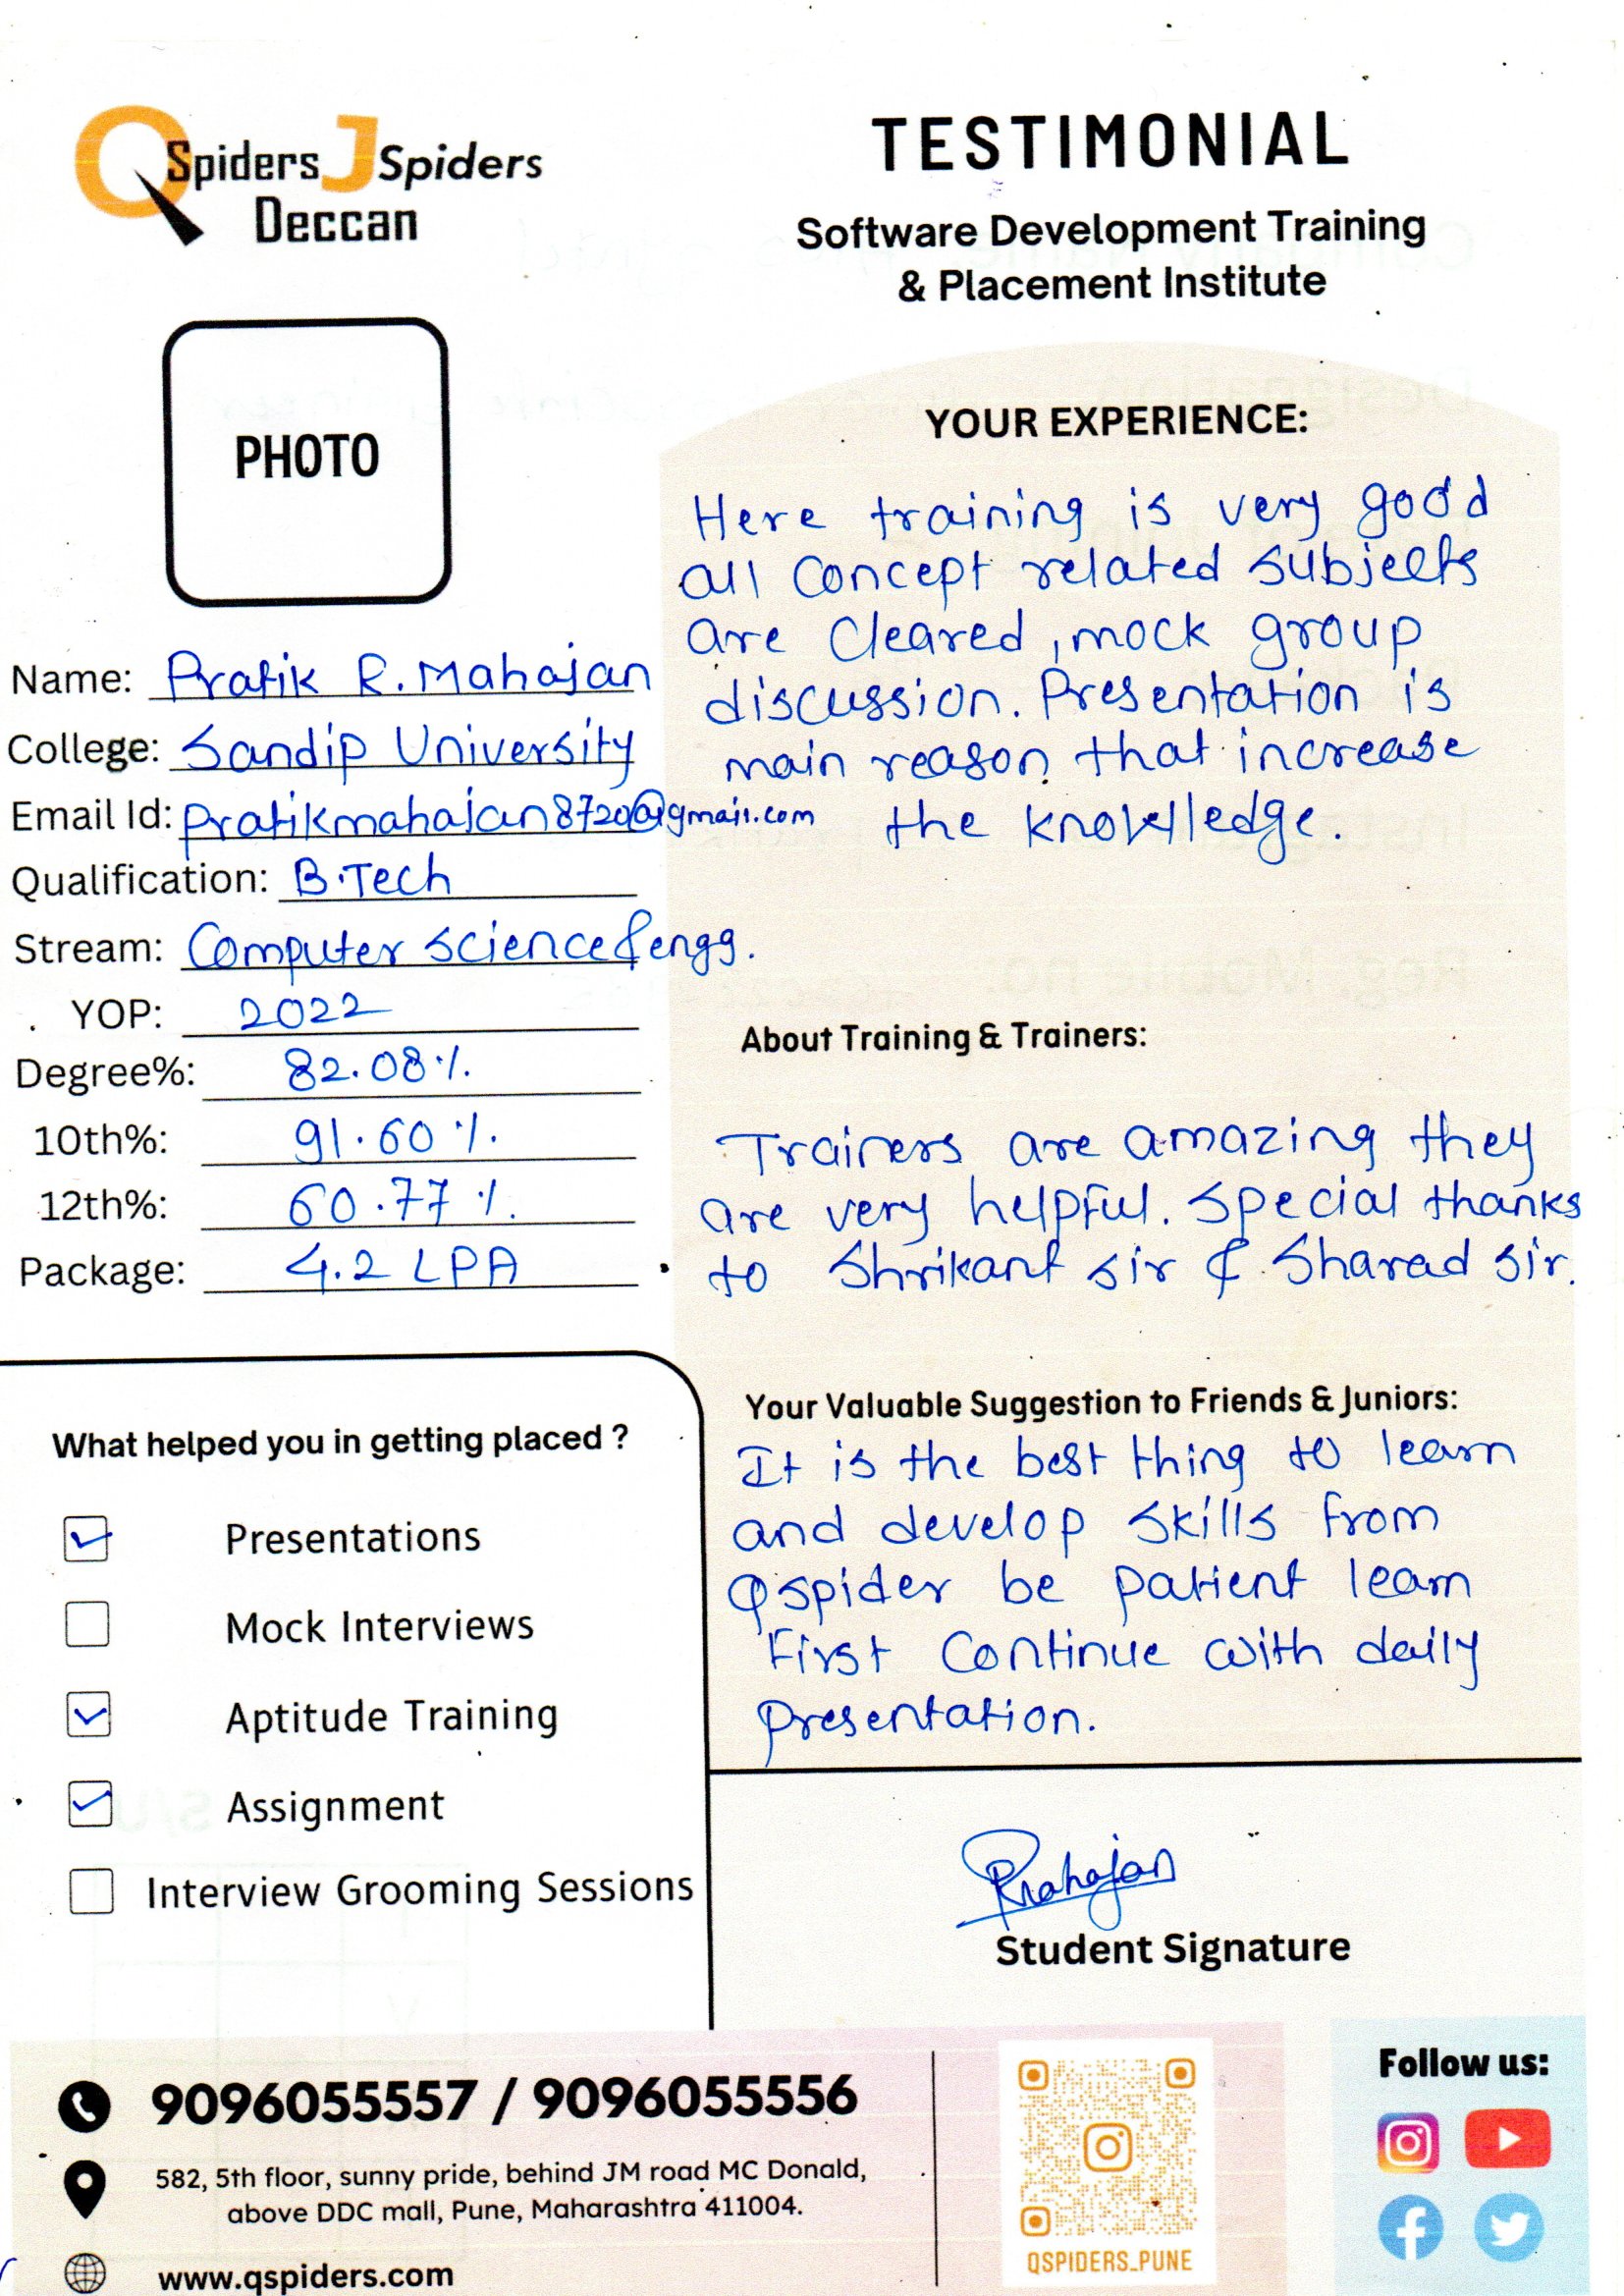 QSpiders JSpiders
Deccan
TESTIMONIAL
Software Development Training
& Placement Institute
PHOTO
Name: Pratik R. Mahajan
College: Sandip University
Email Id: pratikmahajan8720@gmail.com
Qualification: B.Tech
Stream: Computer science & engg.
YOP: 2022
Degree%: 82.08%
10th%: 91.60%
12th%: 60.77%
Package: 4.2 LPA
YOUR EXPERIENCE:
Here training is very good
all concept related subjects
are cleared, mock group
discussion. Presentation is
main reason that increase
the knowledge.
About Training & Trainers:
Trainers are amazing they
are very helpful. special thanks
to Shrikant sir & Sharad sir.
Your Valuable Suggestion to Friends & Juniors:
It is the best thing to learn
and develop skills from
Qspider be patient learn
First continue with daily
presentation.
What helped you in getting placed ?
Presentations
Mock Interviews
Aptitude Training
Assignment
Interview Grooming Sessions
PRMahajan
Student Signature
9096055557 / 9096055556
582, 5th floor, sunny pride, behind JM road MC Donald,
above DDC mall, Pune, Maharashtra 411004.
www.qspiders.com
QSPIDERS_PUNE
Follow us: